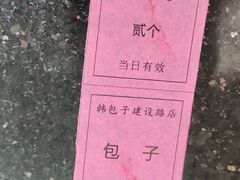 贰个
当日有效
韩包子建设路店
包子